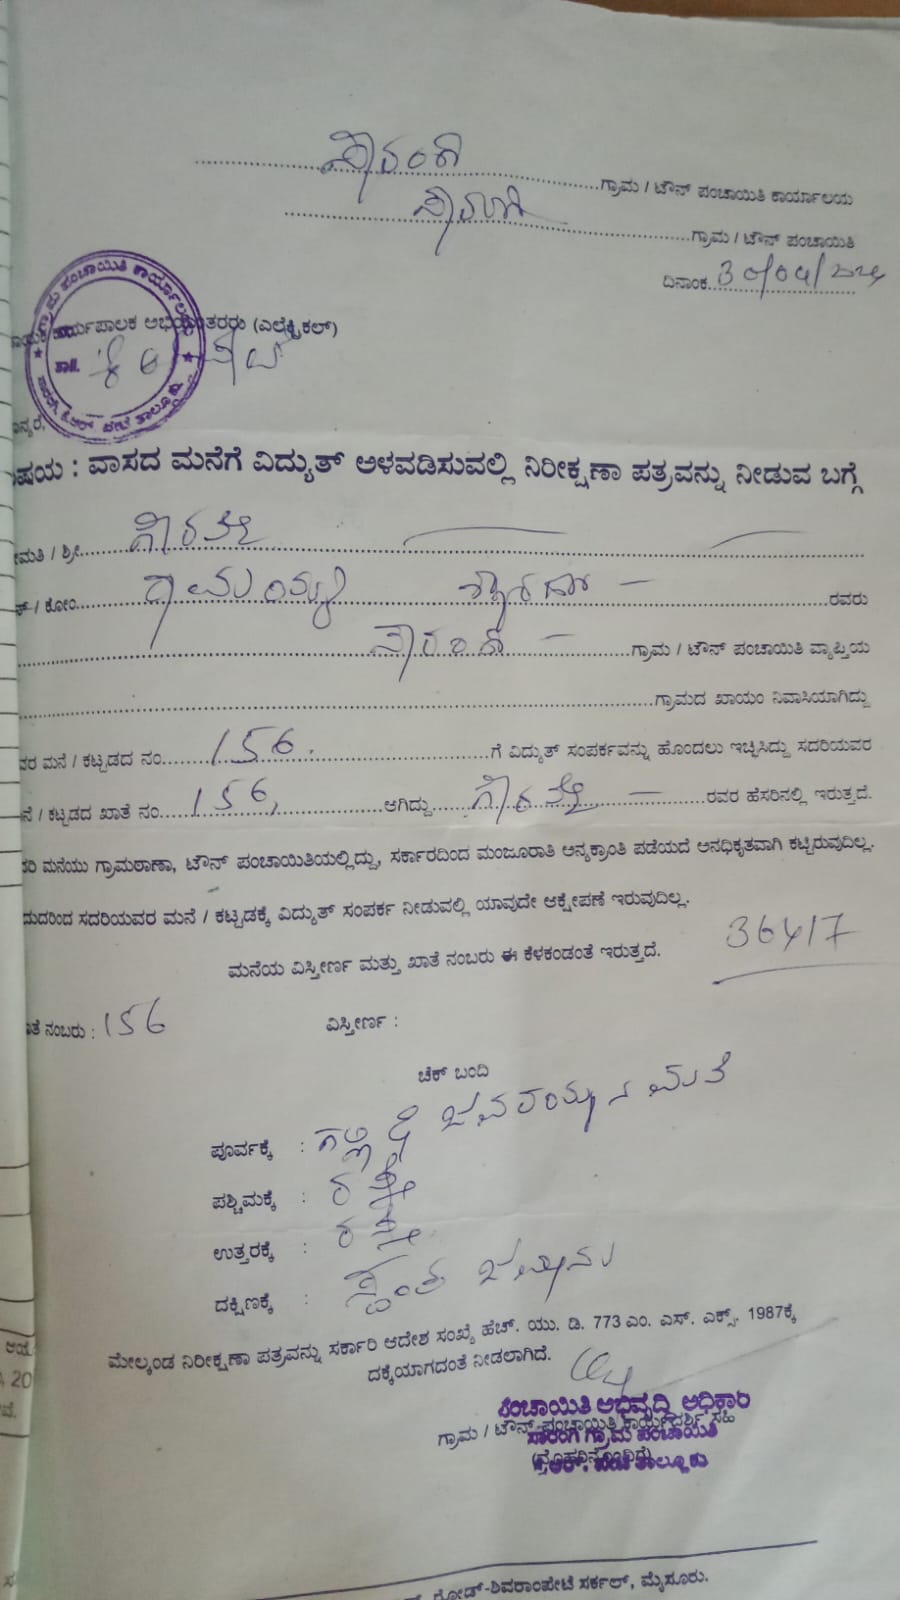 ಸಾರಂಗಿ ಗ್ರಾಮ / ಟೌನ್ ಪಂಚಾಯಿತಿ ಕಾರ್ಯಾಲಯ
ಸಾರಂಗಿ ಗ್ರಾಮ / ಟೌನ್ ಪಂಚಾಯಿತಿ
ದಿನಾಂಕ 30/04/2024
ಗ್ರಾಮ ಪಂಚಾಯಿತಿ ಕಾರ್ಯಾಲಯ
ಕಾರ್ಯಪಾಲಕ ಅಭಿಯಂತರರು (ಎಲೆಕ್ಟ್ರಿಕಲ್)
ತಾಲ್ಲೂಕು
ವಾಸದ ಮನೆಗೆ ವಿದ್ಯುತ್ ಅಳವಡಿಸುವಲ್ಲಿ ನಿರೀಕ್ಷಣಾ ಪತ್ರವನ್ನು ನೀಡುವ ಬಗ್ಗೆ
/ ಶ್ರೀ ಗೌರಮ್ಮ
/ ಕೋಂ ರಾಮಯ್ಯ ರವರು
ಸಾರಂಗಿ ಗ್ರಾಮ / ಟೌನ್ ಪಂಚಾಯಿತಿ ವ್ಯಾಪ್ತಿಯ
ಗ್ರಾಮದ ಖಾಯಂ ನಿವಾಸಿಯಾಗಿದ್ದು
ಮನೆ / ಕಟ್ಟಡದ ನಂ 156 ಗೆ ವಿದ್ಯುತ್ ಸಂಪರ್ಕವನ್ನು ಹೊಂದಲು ಇಚ್ಛಿಸಿದ್ದು ಸದರಿಯವರ
/ ಕಟ್ಟಡದ ಖಾತೆ ನಂ 156, ಆಗಿದ್ದು ಗೌರಮ್ಮ ರವರ ಹೆಸರಿನಲ್ಲಿ ಇರುತ್ತದೆ.
ಮನೆಯು ಗ್ರಾಮಠಾಣಾ, ಟೌನ್ ಪಂಚಾಯಿತಿಯಲ್ಲಿದ್ದು, ಸರ್ಕಾರದಿಂದ ಮಂಜೂರಾತಿ ಅನ್ಯಕ್ರಾಂತಿ ಪಡೆಯದೆ ಅನಧಿಕೃತವಾಗಿ ಕಟ್ಟಿರುವುದಿಲ್ಲ.
ಸದರಿಯವರ ಮನೆ / ಕಟ್ಟಡಕ್ಕೆ ವಿದ್ಯುತ್ ಸಂಪರ್ಕ ನೀಡುವಲ್ಲಿ ಯಾವುದೇ ಆಕ್ಷೇಪಣೆ ಇರುವುದಿಲ್ಲ.
36417
ಮನೆಯ ವಿಸ್ತೀರ್ಣ ಮತ್ತು ಖಾತೆ ನಂಬರು ಈ ಕೆಳಕಂಡಂತೆ ಇರುತ್ತದೆ.
ನಂಬರು : 156 ವಿಸ್ತೀರ್ಣ :
ಚೆಕ್ ಬಂದಿ
ಪೂರ್ವಕ್ಕೆ : ಗಲ್ಲಿ ಜವರಯ್ಯನ ಮನೆ
ಪಶ್ಚಿಮಕ್ಕೆ : ರಸ್ತೆ
ಉತ್ತರಕ್ಕೆ : ರಸ್ತೆ
ದಕ್ಷಿಣಕ್ಕೆ : ಸ್ವಂತ ಜಮೀನು
ಮೇಲ್ಕಂಡ ನಿರೀಕ್ಷಣಾ ಪತ್ರವನ್ನು ಸರ್ಕಾರಿ ಆದೇಶ ಸಂಖ್ಯೆ ಹೆಚ್. ಯು. ಡಿ. 773 ಎಂ. ಎಸ್. ಎಕ್ಸ್. 1987ಕ್ಕೆ
ದಕ್ಕೆಯಾಗದಂತೆ ನೀಡಲಾಗಿದೆ.
ಪಂಚಾಯಿತಿ ಅಭಿವೃದ್ಧಿ ಅಧಿಕಾರಿ
ಗ್ರಾಮ / ಟೌನ್ ಪಂಚಾಯಿತಿ ಕಾರ್ಯದರ್ಶಿ ಸಹಿ
ಸಾರಂಗಿ ಗ್ರಾಮ ಪಂಚಾಯಿತಿ
ಕೆ.ಆರ್. ಪೇಟೆ ತಾಲ್ಲೂಕು
ರೋಡ್-ಶಿವರಾಂಪೇಟೆ ಸರ್ಕಲ್, ಮೈಸೂರು.